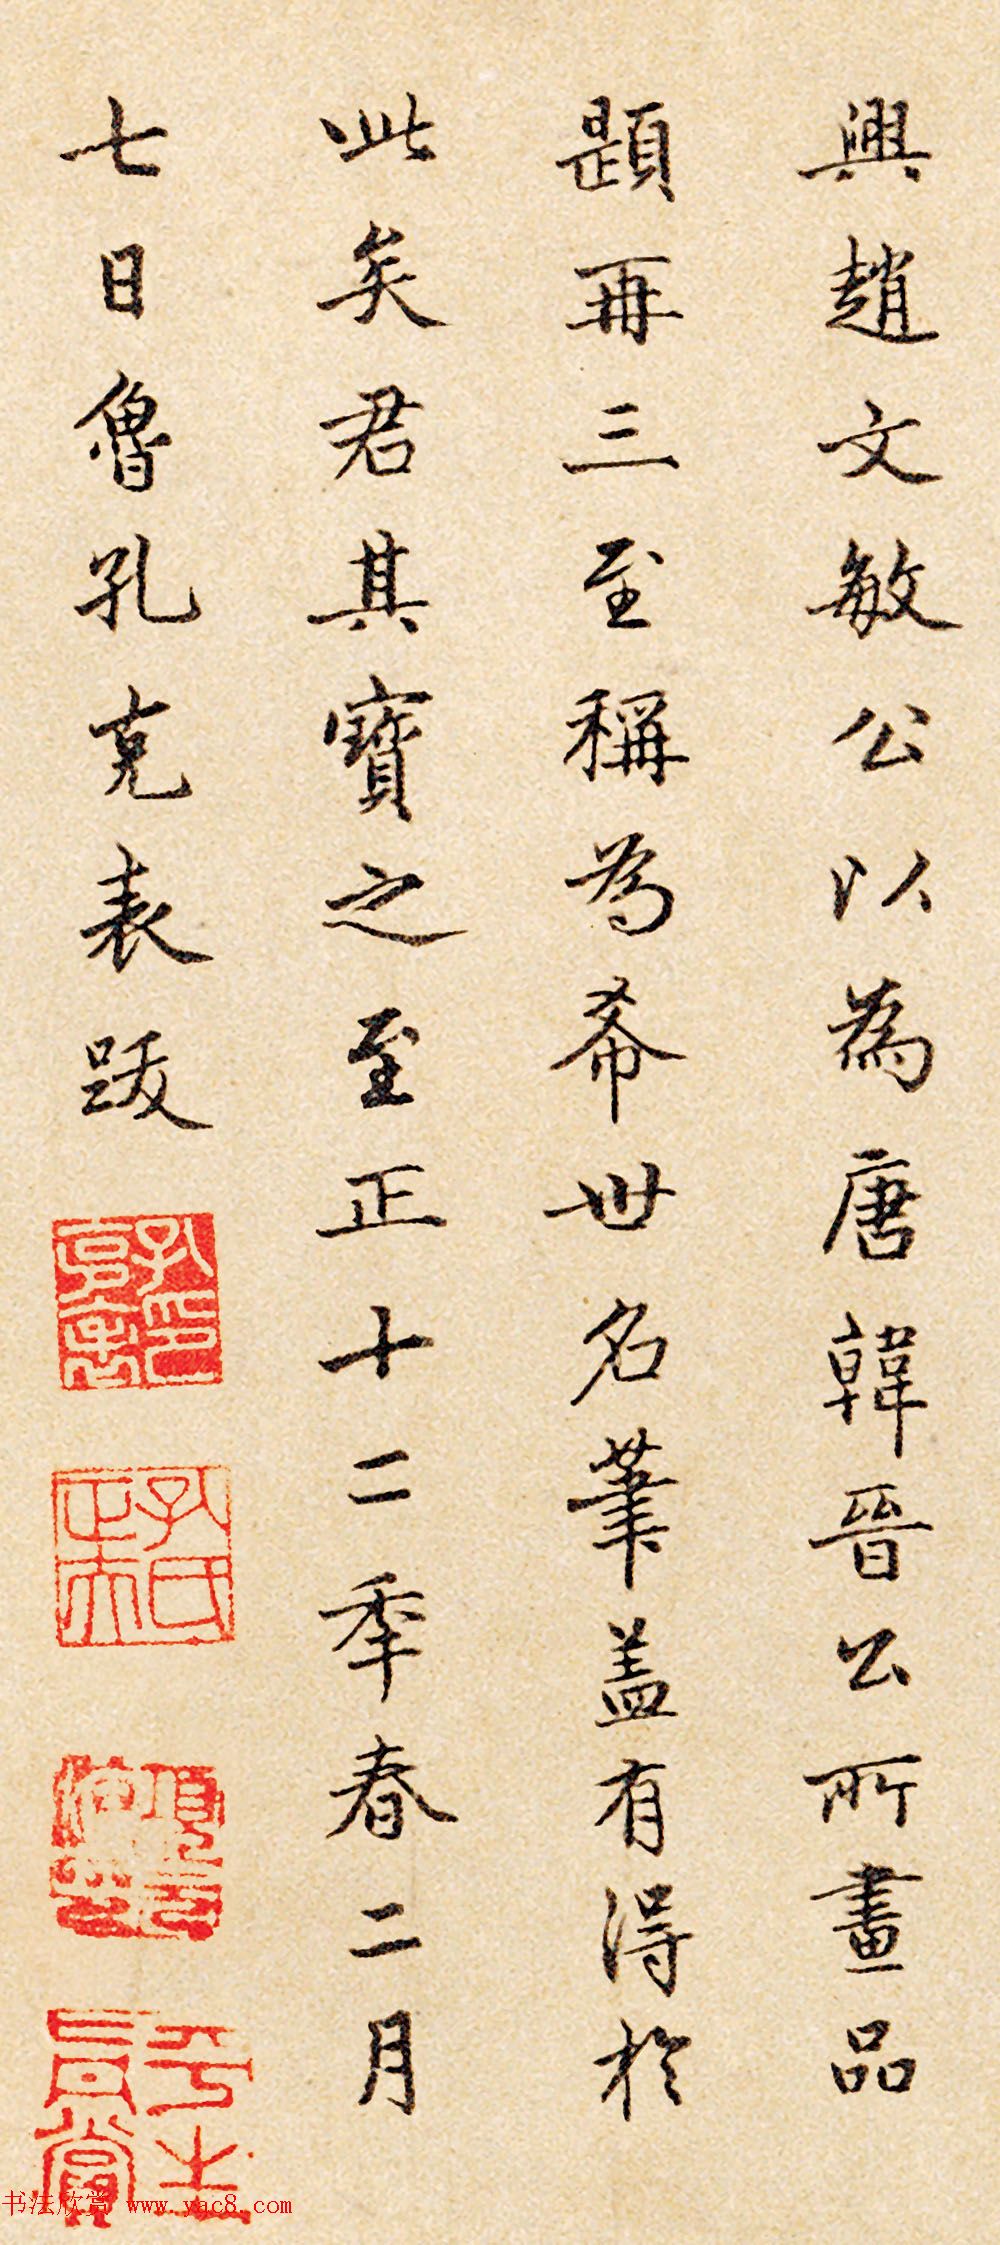 興趙文敏公以為唐韓晉公所畫品
題再三至稱為希世名筆盖有得於
此矣君其寶之至正十二秊春二月
七日魯孔克表跋
孔氏正夫
平生真賞
书法欣赏 www.yac8.com